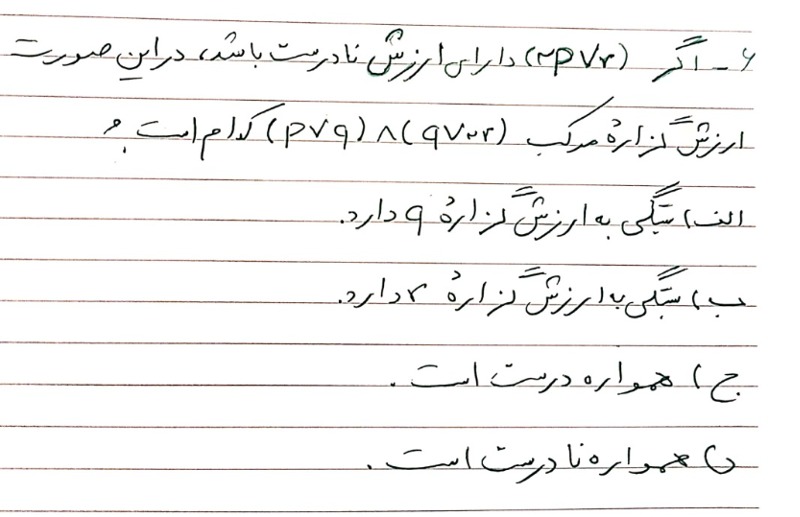 ۶ـ اگر (~p∨r) دارای ارزش نادرست باشد، در این صورت
ارزش گزارهٔ مرکب (p∨q)∧(q∨~r) کدام است؟
الف) بستگی به ارزش گزارهٔ q دارد.
ب) بستگی به ارزش گزارهٔ r دارد.
ج) همواره درست است.
د) همواره نادرست است.